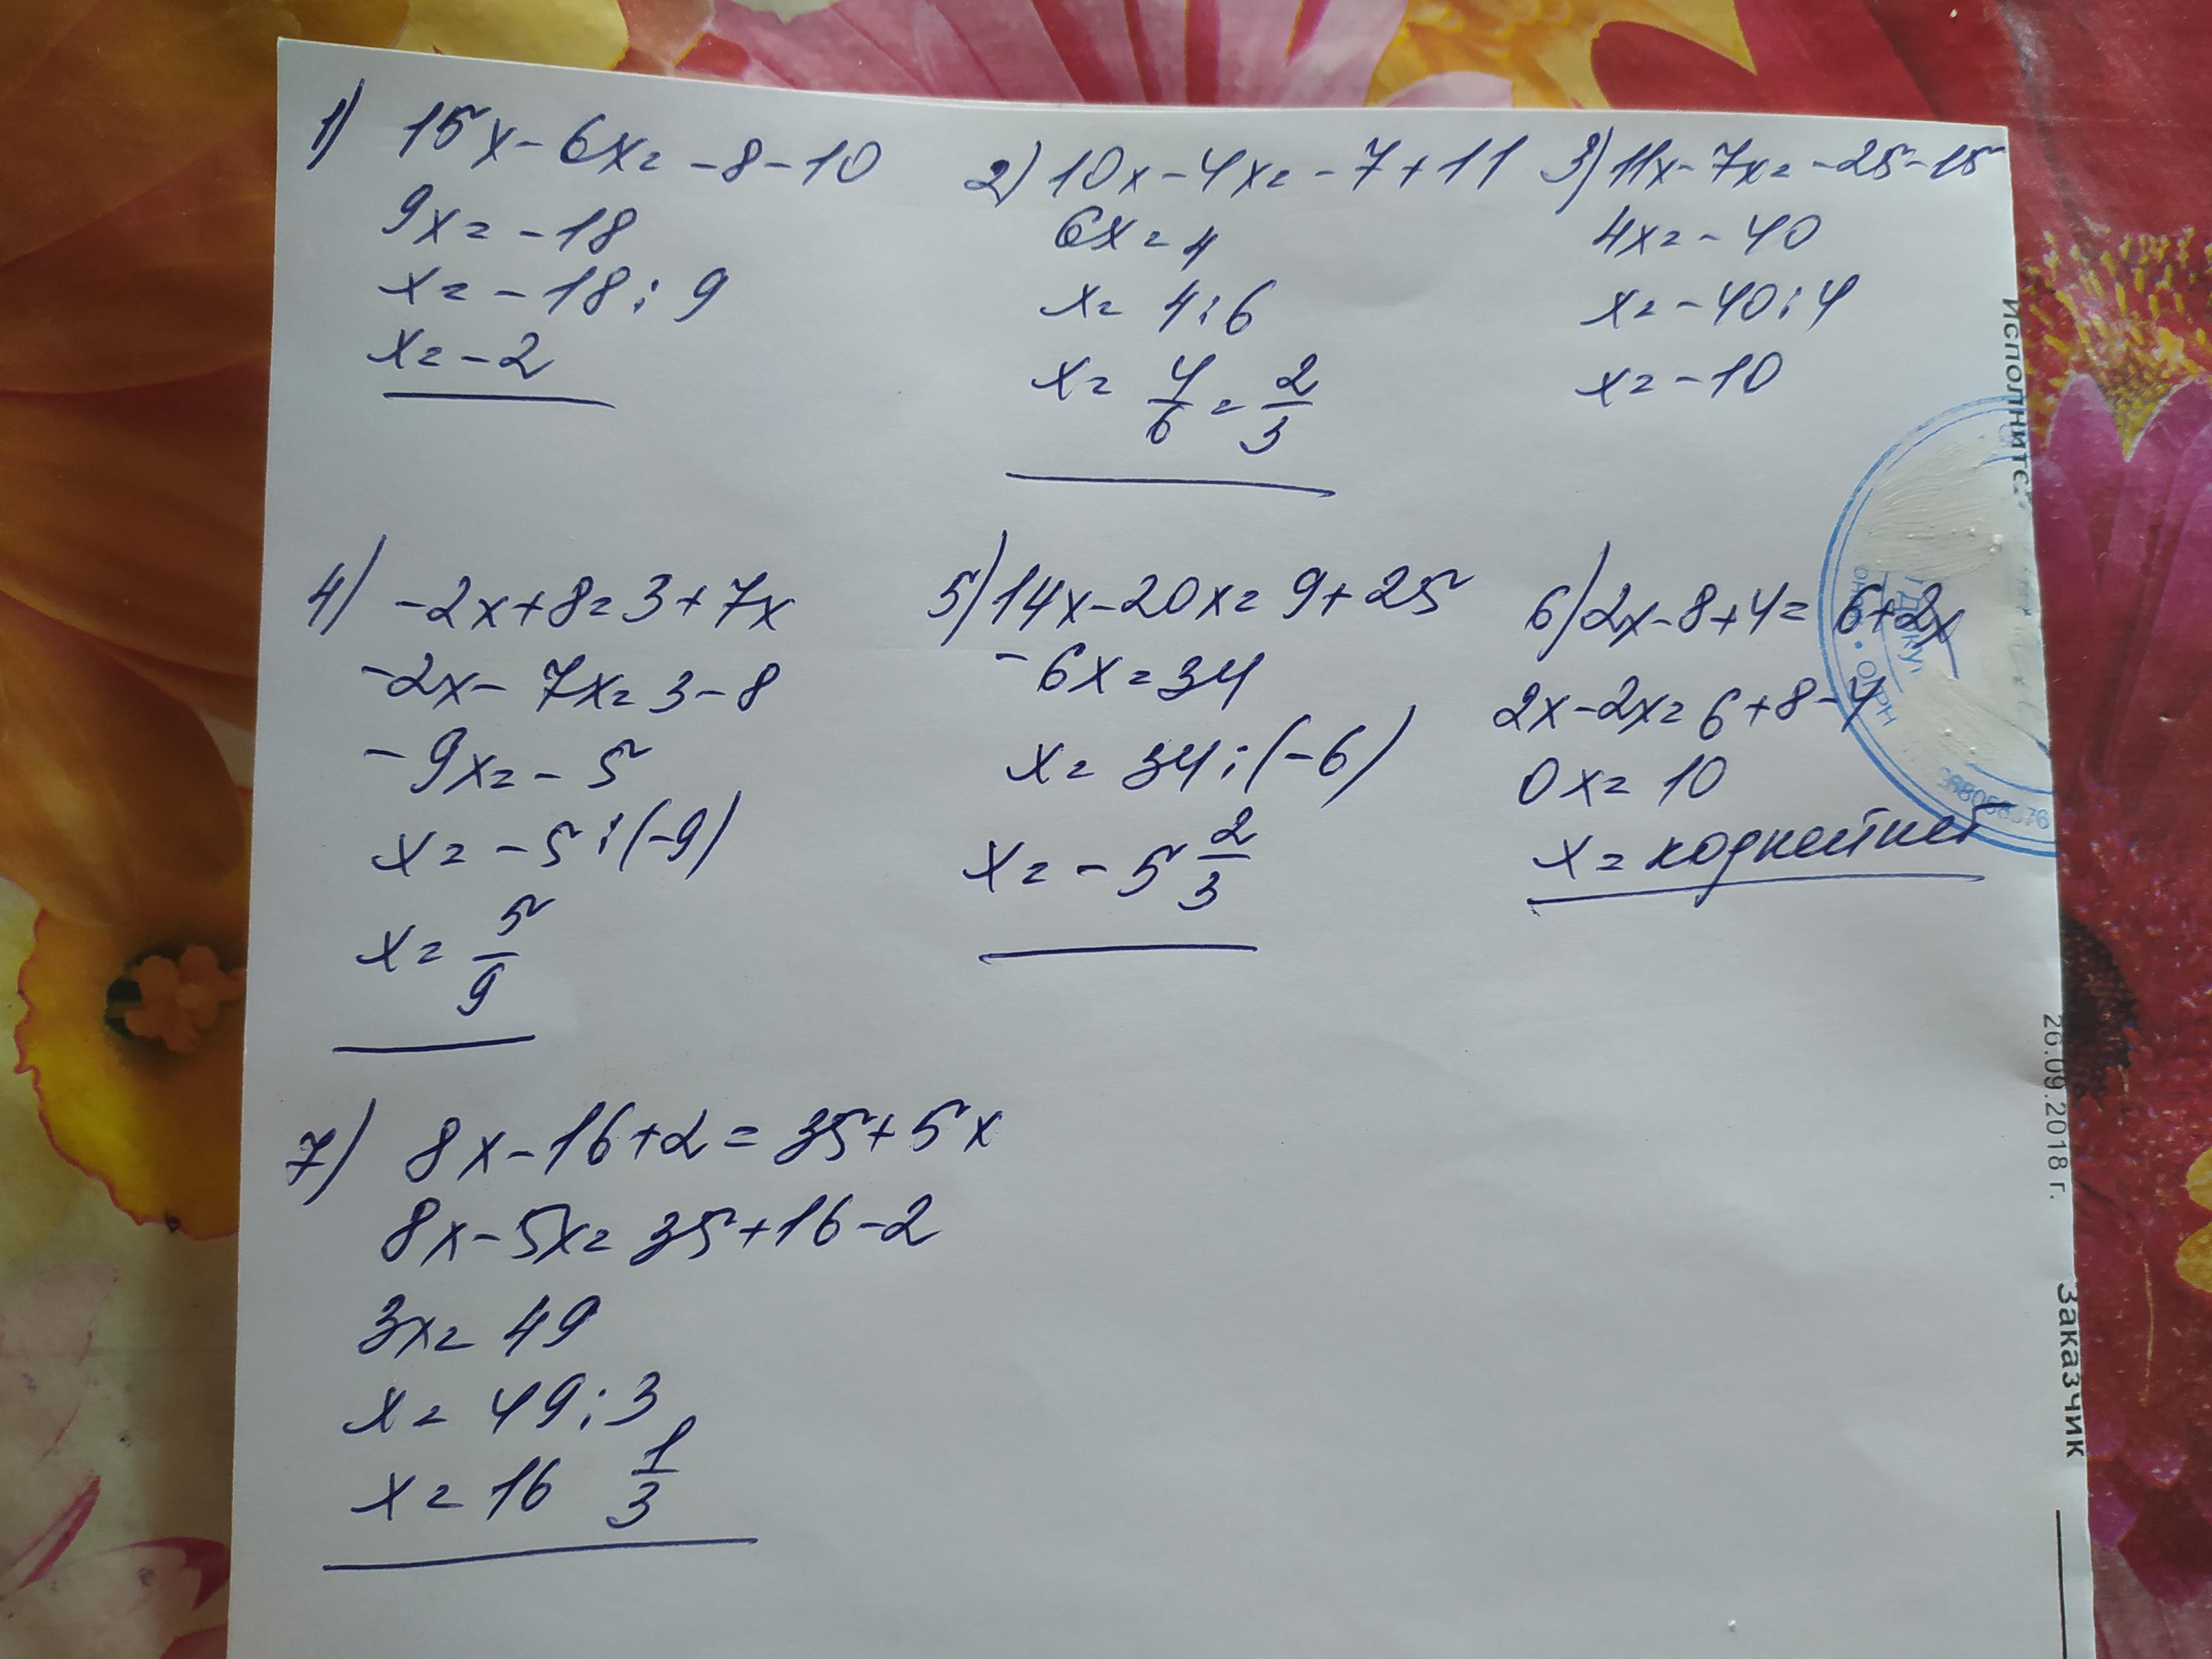 1) 15x-6x=-8-10
9x=-18
x=-18:9
x=-2
2) 10x-4x=-7+11
6x=4
x=4:6
x=4/6=2/3
3) 11x-7x=-25-15
4x=-40
x=-40:4
x=-10
4) -2x+8=3+7x
-2x-7x=3-8
-9x=-5
x=-5:(-9)
x=5/9
5) 14x-20x=9+25
-6x=34
x=34:(-6)
x=-5 2/3
6) 2x-8+4=6+2x
2x-2x=6+8-4
0x=10
x=корнейнет
7) 8x-16+2=35+5x
8x-5x=35+16-2
3x=49
x=49:3
x=16 1/3
Исполните
ОГРН
26.09.2018 г.
Заказчик